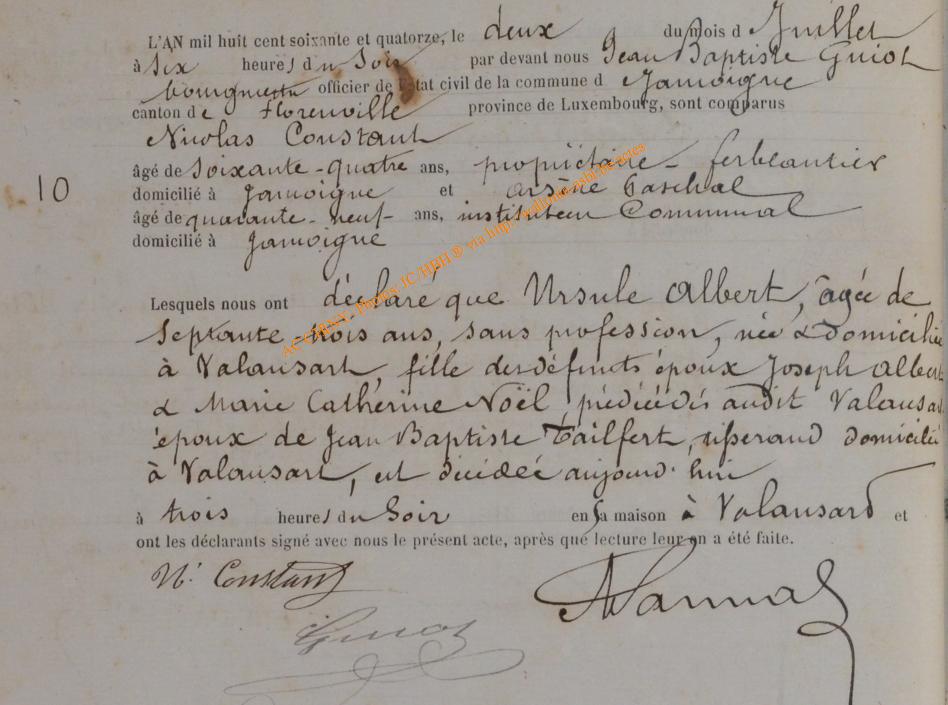 L'AN mil huit cent soixante et quatorze, le deux du mois d Juillet
à Six heures du Soir par devant nous Jean Baptiste Guiot
bourgmestre officier de l'état civil de la commune d Jamoigne
canton de Florenville province de Luxembourg, sont comparus
Nicolas Constant
âgé de Soixante-quatre ans, propriétaire - ferblantier
10 domicilié à Jamoigne et arsène Paschal
âgé de quarante-neuf- ans, instituteur Communal
domicilié à Jamoigne
Lesquels nous ont déclaré que Ursule Albert, agée de
Septante-trois ans, sans profession, née & domiciliée
à Valansart, fille des défunts époux Joseph Albert
& Marie Catherine Noël, prédécédés audit Valansart
époux de Jean Baptiste Tailfert, tisserand domicilié
à Valansart, est décédée aujourd'hui
à trois heures du Soir en sa maison à Valansard et
ont les déclarants signé avec nous le présent acte, après que lecture leur en a été faite.
N. Constant
Guiot